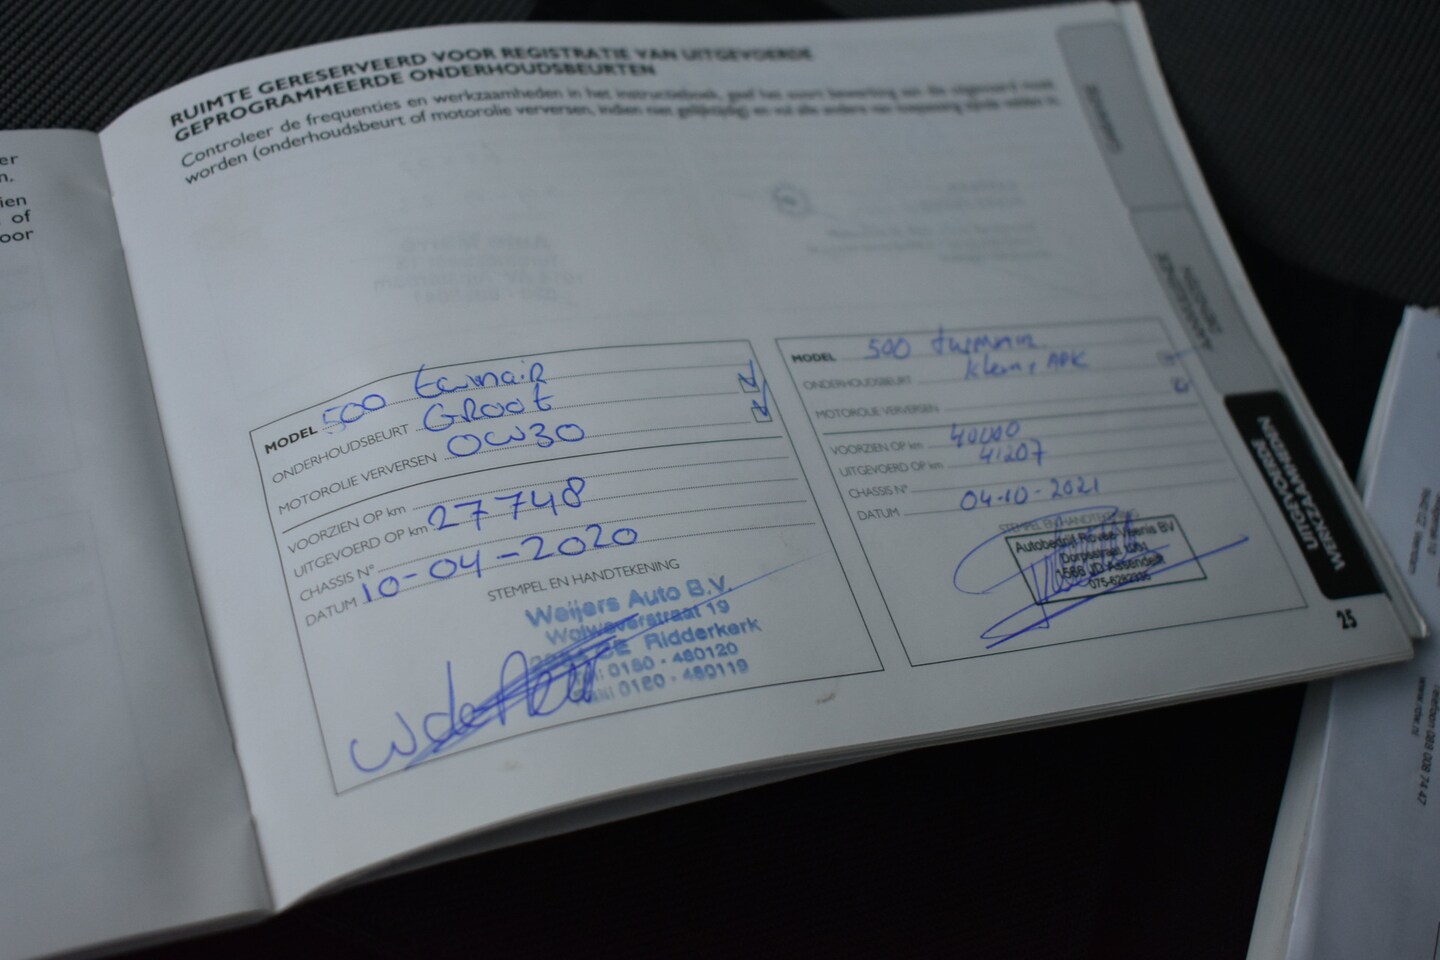 er
n.
ien
of
oor
RUIMTE GERESERVEERD VOOR REGISTRATIE VAN UITGEVOERDE
GEPROGRAMMEERDE ONDERHOUDSBEURTEN
Controleer de frequenties en werkzaamheden in het instructieboek, geef het soort bewerking aan die uitgevoerd moet
worden (onderhoudsbeurt of motorolie verversen, indien niet gelijktijdig) en vul alle andere van toepassing zijnde velden in
MODEL 500 twinair
ONDERHOUDSBEURT GROOT
MOTOROLIE VERVERSEN 0W30
VOORZIEN OP km
UITGEVOERD OP km 27748
CHASSIS N°
DATUM 10-04-2020
STEMPEL EN HANDTEKENING
Weijers Auto B.V.
Wolweverstraat 19
Ridderkerk
0180 - 480120
0180 - 480119
MODEL 500 twinair
ONDERHOUDSBEURT klein, APK
MOTOROLIE VERVERSEN
VOORZIEN OP km 40000
UITGEVOERD OP km 41207
CHASSIS N°
DATUM 04-10-2021
STEMPEL EN HANDTEKENING
Autobedrijf BV
Dorpsstraat
1566 JD Assendelft
UITGEVOERDE
WERKZAAMHEDEN
25
Telefoon 088 008 74 47
www.rdw.nl